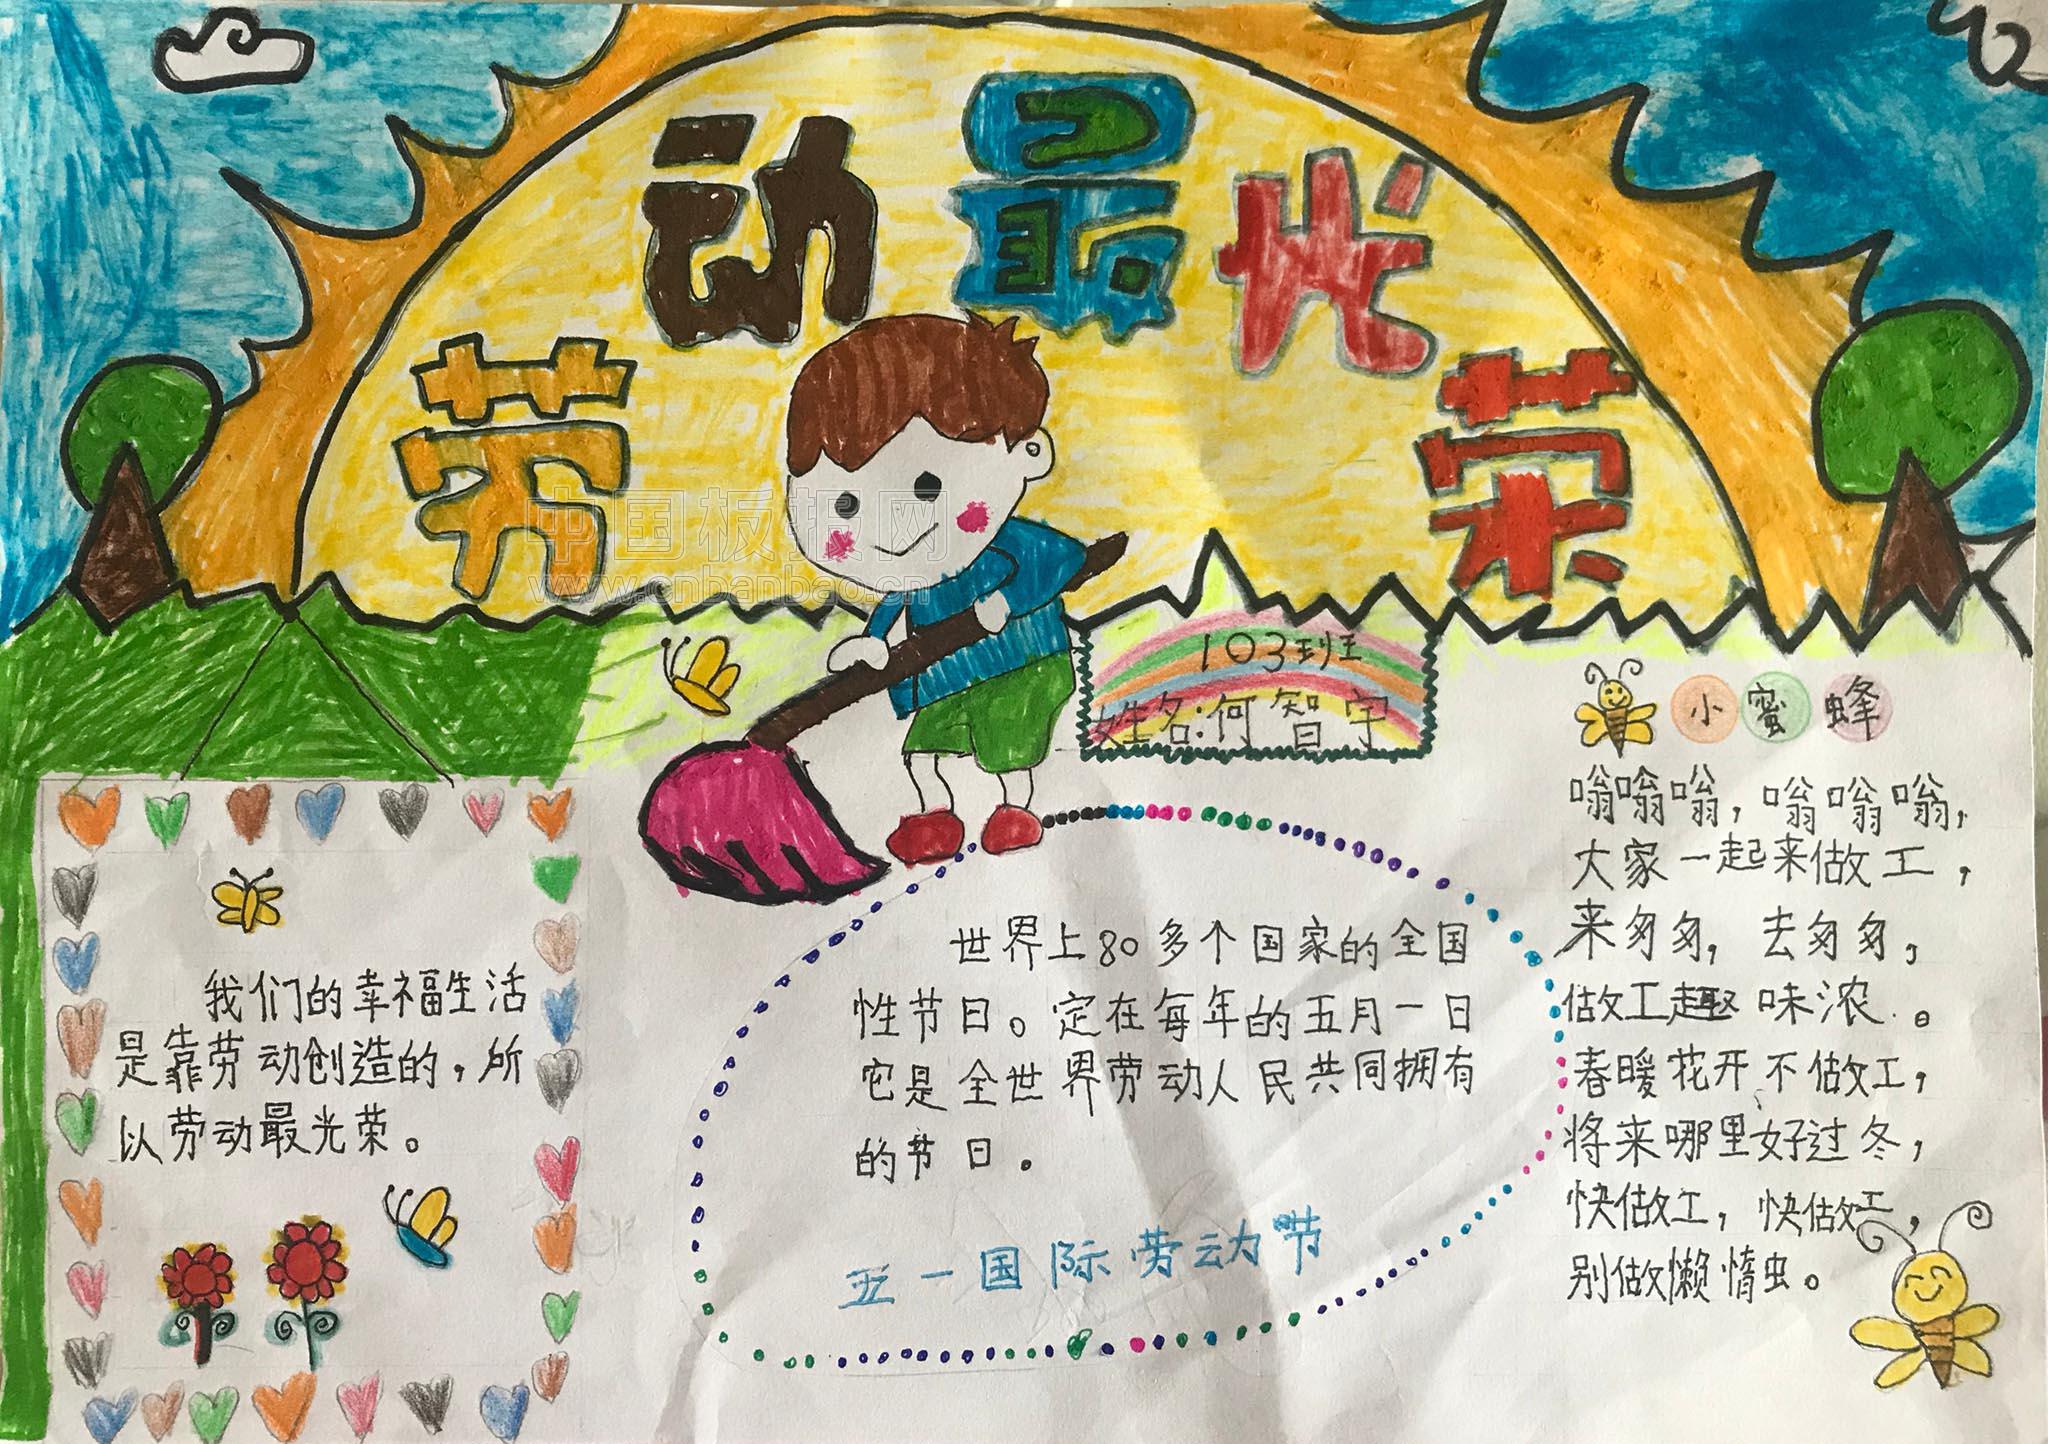 劳动最光荣
中国板报网
www.cnbanbao.cn
103班
姓名:何智宇
我们的幸福生活
是靠劳动创造的,所
以劳动最光荣。
世界上80多个国家的全国
性节日。定在每年的五月一日
它是全世界劳动人民共同拥有
的节日。
五一国际劳动节
小蜜蜂
嗡嗡嗡,嗡嗡嗡,
大家一起来做工,
来匆匆,去匆匆,
做工趣味浓。
春暖花开不做工,
将来哪里好过冬,
快做工,快做工,
别做懒惰虫。